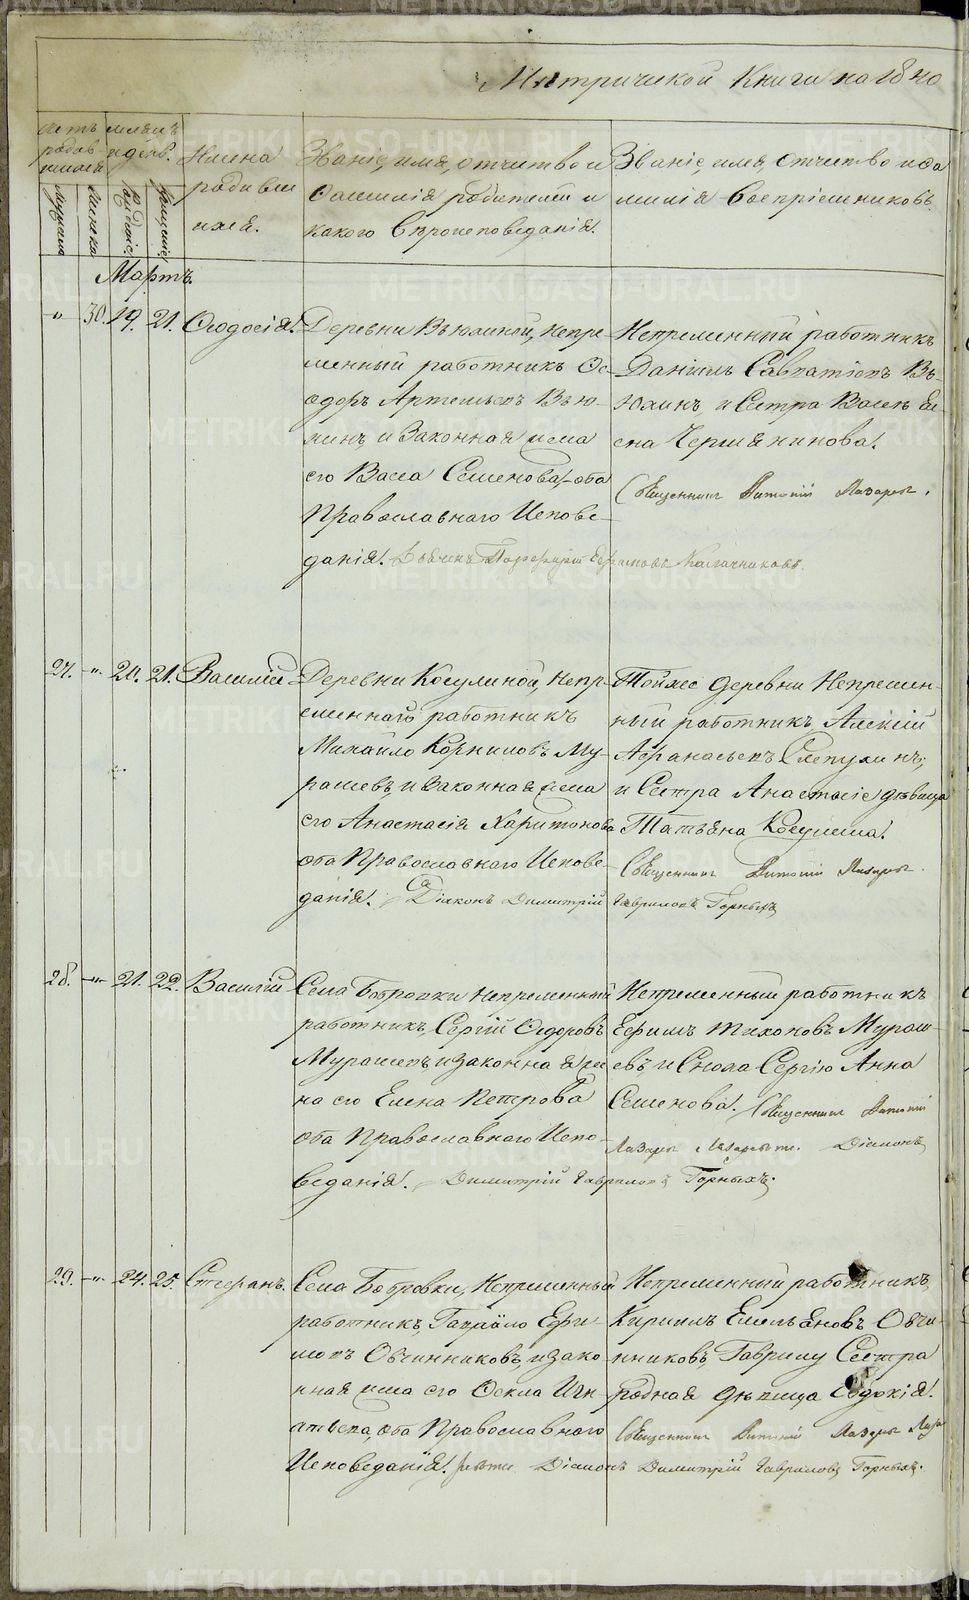 Метрической Книги на 1840
счетъ родившихся
мѣсяцъ и день.
мужеска
женска
рожденіе
крещеніе
Имена родившихся.
Званіе, имя, отчество и
фамилія родителей и
какого Вѣроисповѣданія.
Званіе, имя, отчество и фа
милія Воспріемниковъ.
Мартъ.
" 30. 19. 21. Ѳеодосія.
Деревни Вьюхиной, непре
менный работникъ Ѳе
одоръ Артемьевъ Вью
хинъ, и Законная жена
его Васса Семенова, оба
Православнаго Испове
данія.
Непременный работникъ
Даніилъ Савватіевъ Вь
юхинъ, и Сестра Вассѣ Еле
на Черманинова.
Священникъ Виталій Лазаревъ.
27. " 20. 21. Василій
Деревни Косулиной, Непр
еменнаго работникъ
Михайло Корниловъ Му
рашевъ, и Законная жена
его Анастасія Харитонова
оба Православнаго Испове
данія. Діаконъ Димитрій Гавриловъ Горныхъ
Тойже деревни Непремен
ный работникъ Алексій
Афанасьевъ Слепухинъ;
и Сестра Анастасіе, дѣвица
Татьяна Косулина.
Священникъ Виталій Лазаревъ.
28. " 21. 22. Василій
Села Бобровки Непременный
работникъ, Сергій Ѳедоровъ
Мурашевъ и законная же
на его Елена Петрова
оба Православнаго Испо
веданія. Димитрій Гавриловъ Горныхъ.
Непременный работникъ
Ефимъ Тихоновъ Мураш
евъ и Сноха Сергію Анна
Семенова. Священникъ Виталій
Лазаревъ. Діаконъ
29. " 24. 25. Стефанъ.
Села Бобровки, Непременный
работникъ, Гаврійло Ефи
мовъ Овчинниковъ, и зако
нная жена его Ѳекла Игн
атьева, оба Православнаго
Исповеданія. Діаконъ Димитрій Гавриловъ Горныхъ.
Непременный работникъ,
Кирилъ Емельяновъ Овчи
нниковъ, Гаврилу Сестра
родная дѣвица Евдокія.
Священникъ Виталій Лазаревъ
METRIKI.GASO-URAL.RU